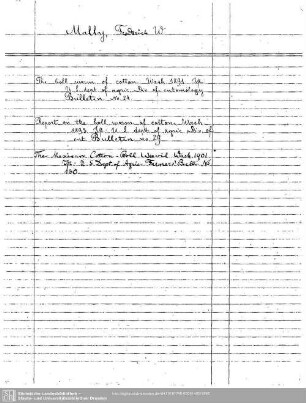 Mally, Frederick W
The boll worm of cotton Wash 1891. 
U S dept of agric. Div of entomology
Bulletin no. 24.
Report on the boll worm of cotton Wash
1893. U S dept of agric div of
ent Bulletin no. 29
The Mexican Cotton-Boll Weevil Wash. 1901
U. S. Dept of Agric. Farmers' Bullet. No
130.